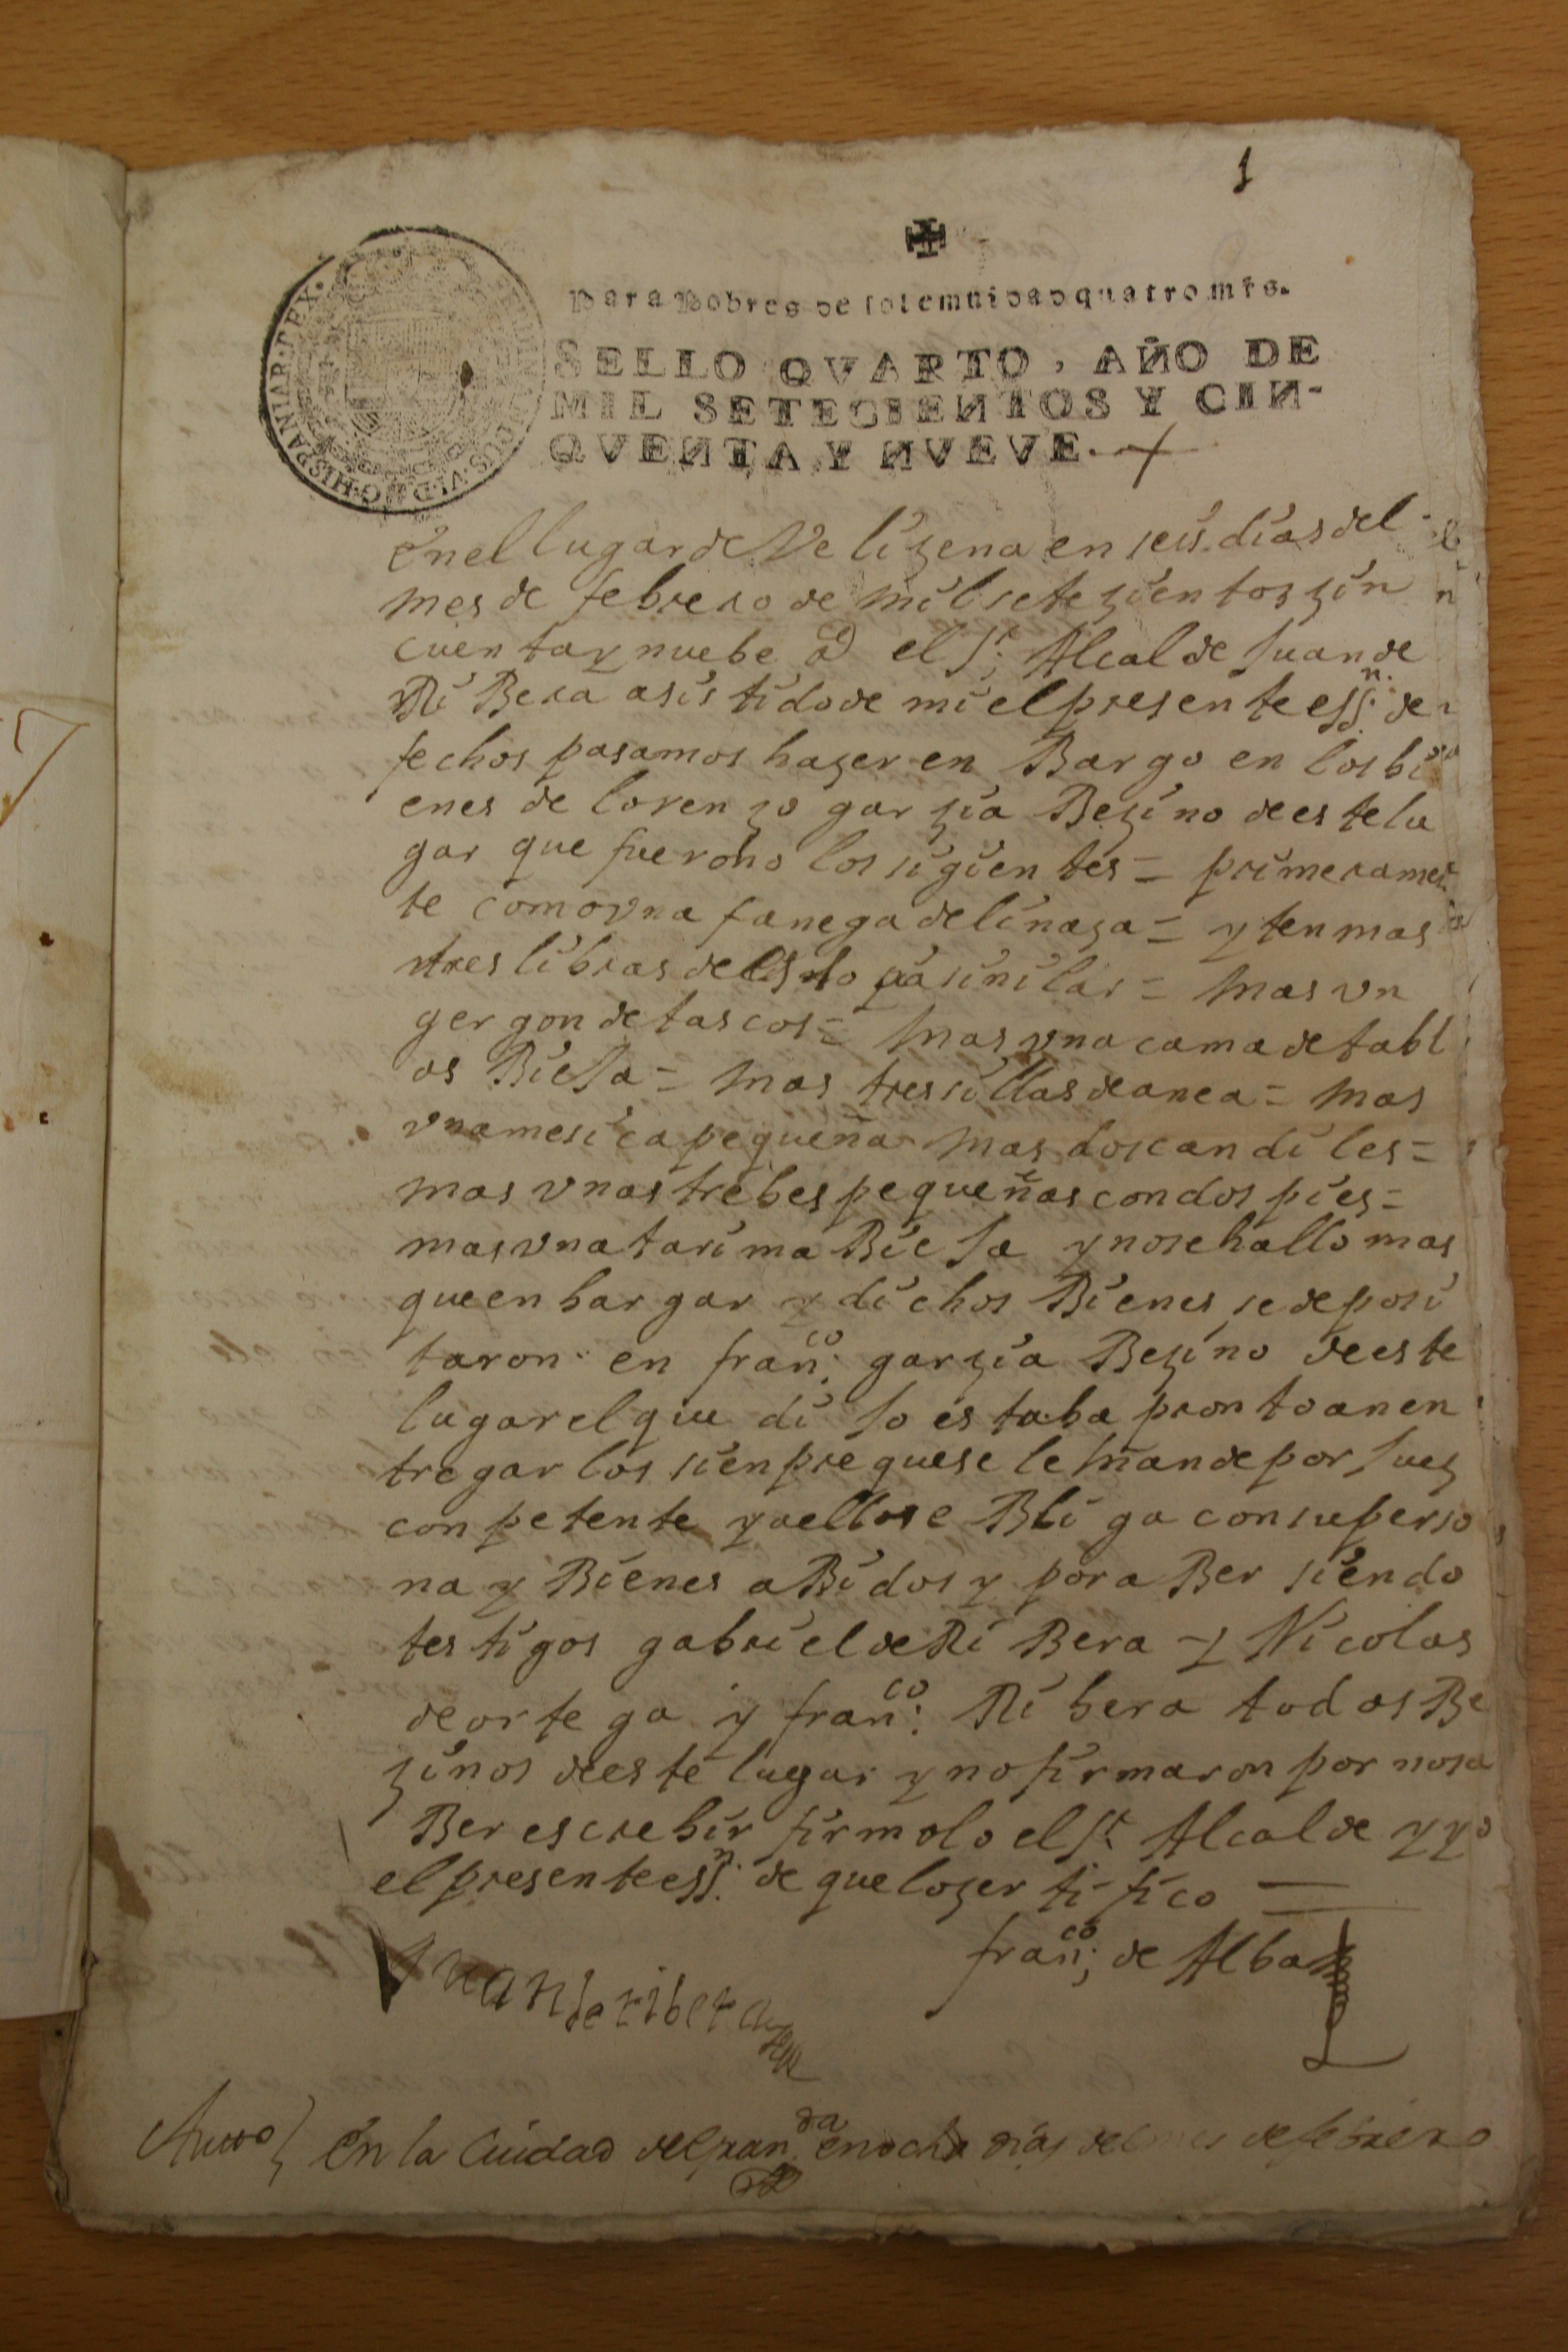 1
Para Pobres de solemnidad quatro mrs.
SELLO QVARTO, AÑO DE
MIL SETECIENTOS Y CIN-
QVENTA Y NVEVE.
HISPANIAR·REX·
VI·D·G·
En el lugar de Velizena en seis dias del
mes de febrero de mil setezientos zin
cuenta y nuebe el Sr. Alcalde Juan de
Ri Bera asistido de mi el presente essn. de
fechos pasamos hazer en Bargo en los bi
enes de lorenzo garzia Bezino de este lu
gar que fueron los sigientes = primeramen
te como vna fanega de linaza = yten mas
tres libras de lino pa sinilar = mas vn
gergon de tascos = mas vna cama de tabl
as Bieja = mas tres sillas de anea = mas
vna mesica pequeña mas dos candiles =
mas vnas trebes pequeñas con dos pies =
mas vna tarima Bieja y no se hallo mas
que enbargar y dichos Bienes se deposi
taron en franco. garzia Bezino de este
lugar el que dijo estaba pronto a nen
tregarlos sienpre que se le mande por Juez
conpetente y a ello se Bliga con su perso
na y Bienes aBidos y por aBer siendo
testigos gabriel de Ri Bera y Nicolas
de ortega y franco. Ribera todos Be
zinos de este lugar y no firmaron por no sa
Ber escrebir firmolo el Sr. Alcalde y yo
el presente essn. de que lo zertifico
franco. de Alba
Juan de ribera
Auto En la Ciudad de Granda. en ocho dias del mes de febrero